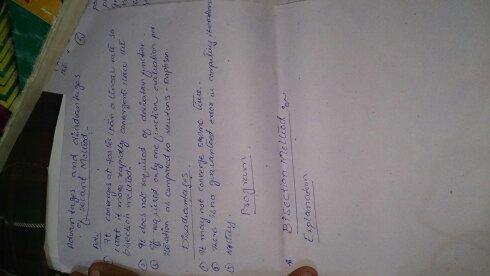 Advantages and disadvantages
of Secant Method:-
Adv
① It converges at faster than a linear rate so
that it more rapidly convergent than the
bisection method.
② It does not required of derivative function
③ It required only one function evaluation per
iteration as compared to newton's Raphson
Disadvantages
① It may not converge some time.
② there is no guaranteed error on computing iterations
③
Program.
* Bisection Method
Explanation